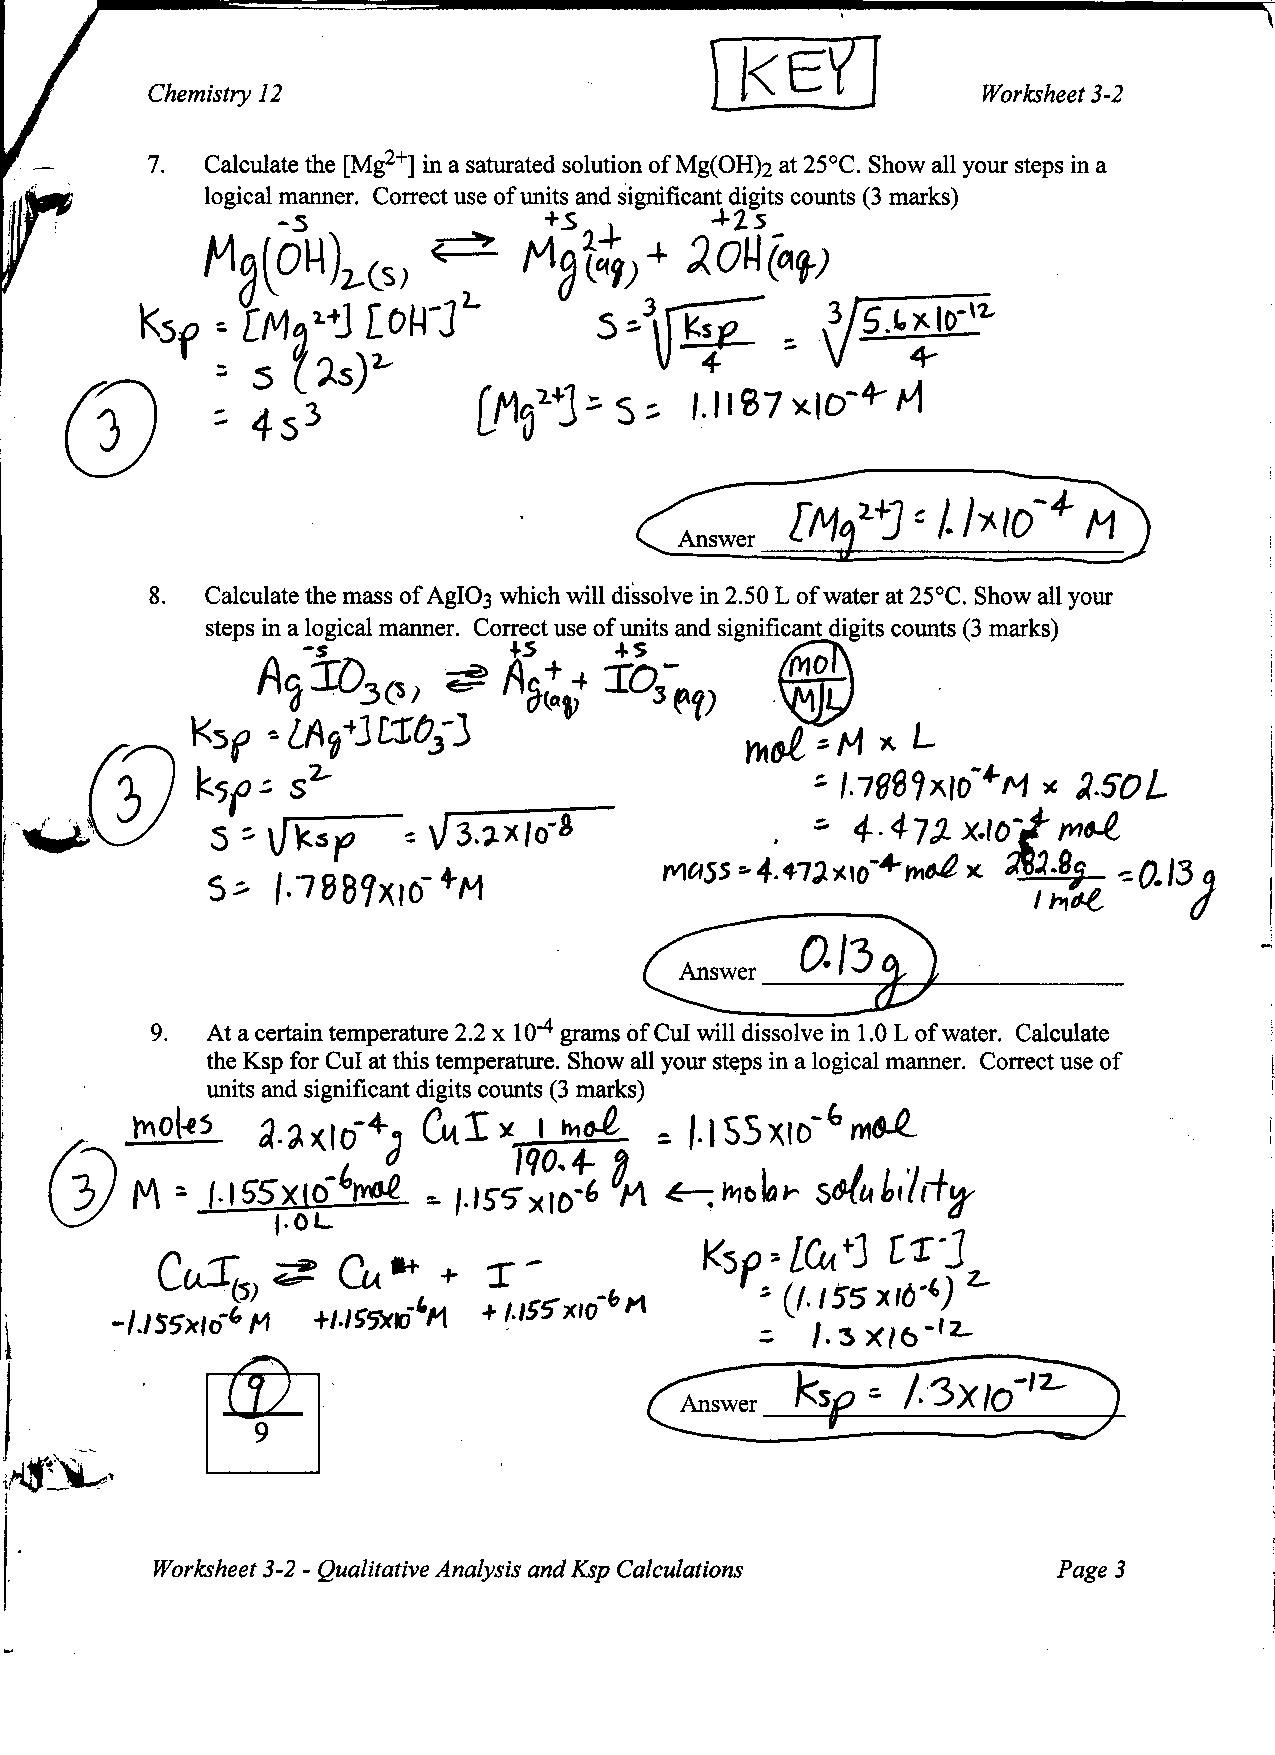 KEY
Chemistry 12 Worksheet 3-2
7. Calculate the [Mg2+] in a saturated solution of Mg(OH)2 at 25°C. Show all your steps in a
logical manner. Correct use of units and significant digits counts (3 marks)
-s +s +2s
Mg(OH)2(s) ⇌ Mg2+(aq) + 2OH-(aq)
Ksp = [Mg2+] [OH-]2
= s (2s)2
= 4s3
s = 3√Ksp/4 = 3√5.6x10-12/4
[Mg2+] = s = 1.1187 x10-4 M
3
Answer [Mg2+] = 1.1x10-4 M
8. Calculate the mass of AgIO3 which will dissolve in 2.50 L of water at 25°C. Show all your
steps in a logical manner. Correct use of units and significant digits counts (3 marks)
-s +s +s
AgIO3(s) ⇌ Ag+(aq) + IO3-(aq)
mol
M|L
Ksp = [Ag+][IO3-]
Ksp = s2
s = √Ksp = √3.2x10-8
s = 1.7889x10-4M
3
mol = M x L
= 1.7889x10-4M x 2.50L
= 4.472 x10-4 mol
mass = 4.472x10-4 mol x 282.8g/1 mol = 0.13 g
Answer 0.13g
9. At a certain temperature 2.2 x 10-4 grams of CuI will dissolve in 1.0 L of water. Calculate
the Ksp for CuI at this temperature. Show all your steps in a logical manner. Correct use of
units and significant digits counts (3 marks)
moles 2.2x10-4g CuI x 1 mol/190.4 g = 1.155x10-6 mol
3
M = 1.155x10-6mol/1.0L = 1.155x10-6 M ← molar solubility
CuI(s) ⇌ Cu+ + I-
-1.155x10-6 M +1.155x10-6M +1.155x10-6M
Ksp = [Cu+] [I-]
= (1.155x10-6)2
= 1.3 x10-12
9
9
Answer Ksp = 1.3x10-12
Worksheet 3-2 - Qualitative Analysis and Ksp Calculations Page 3